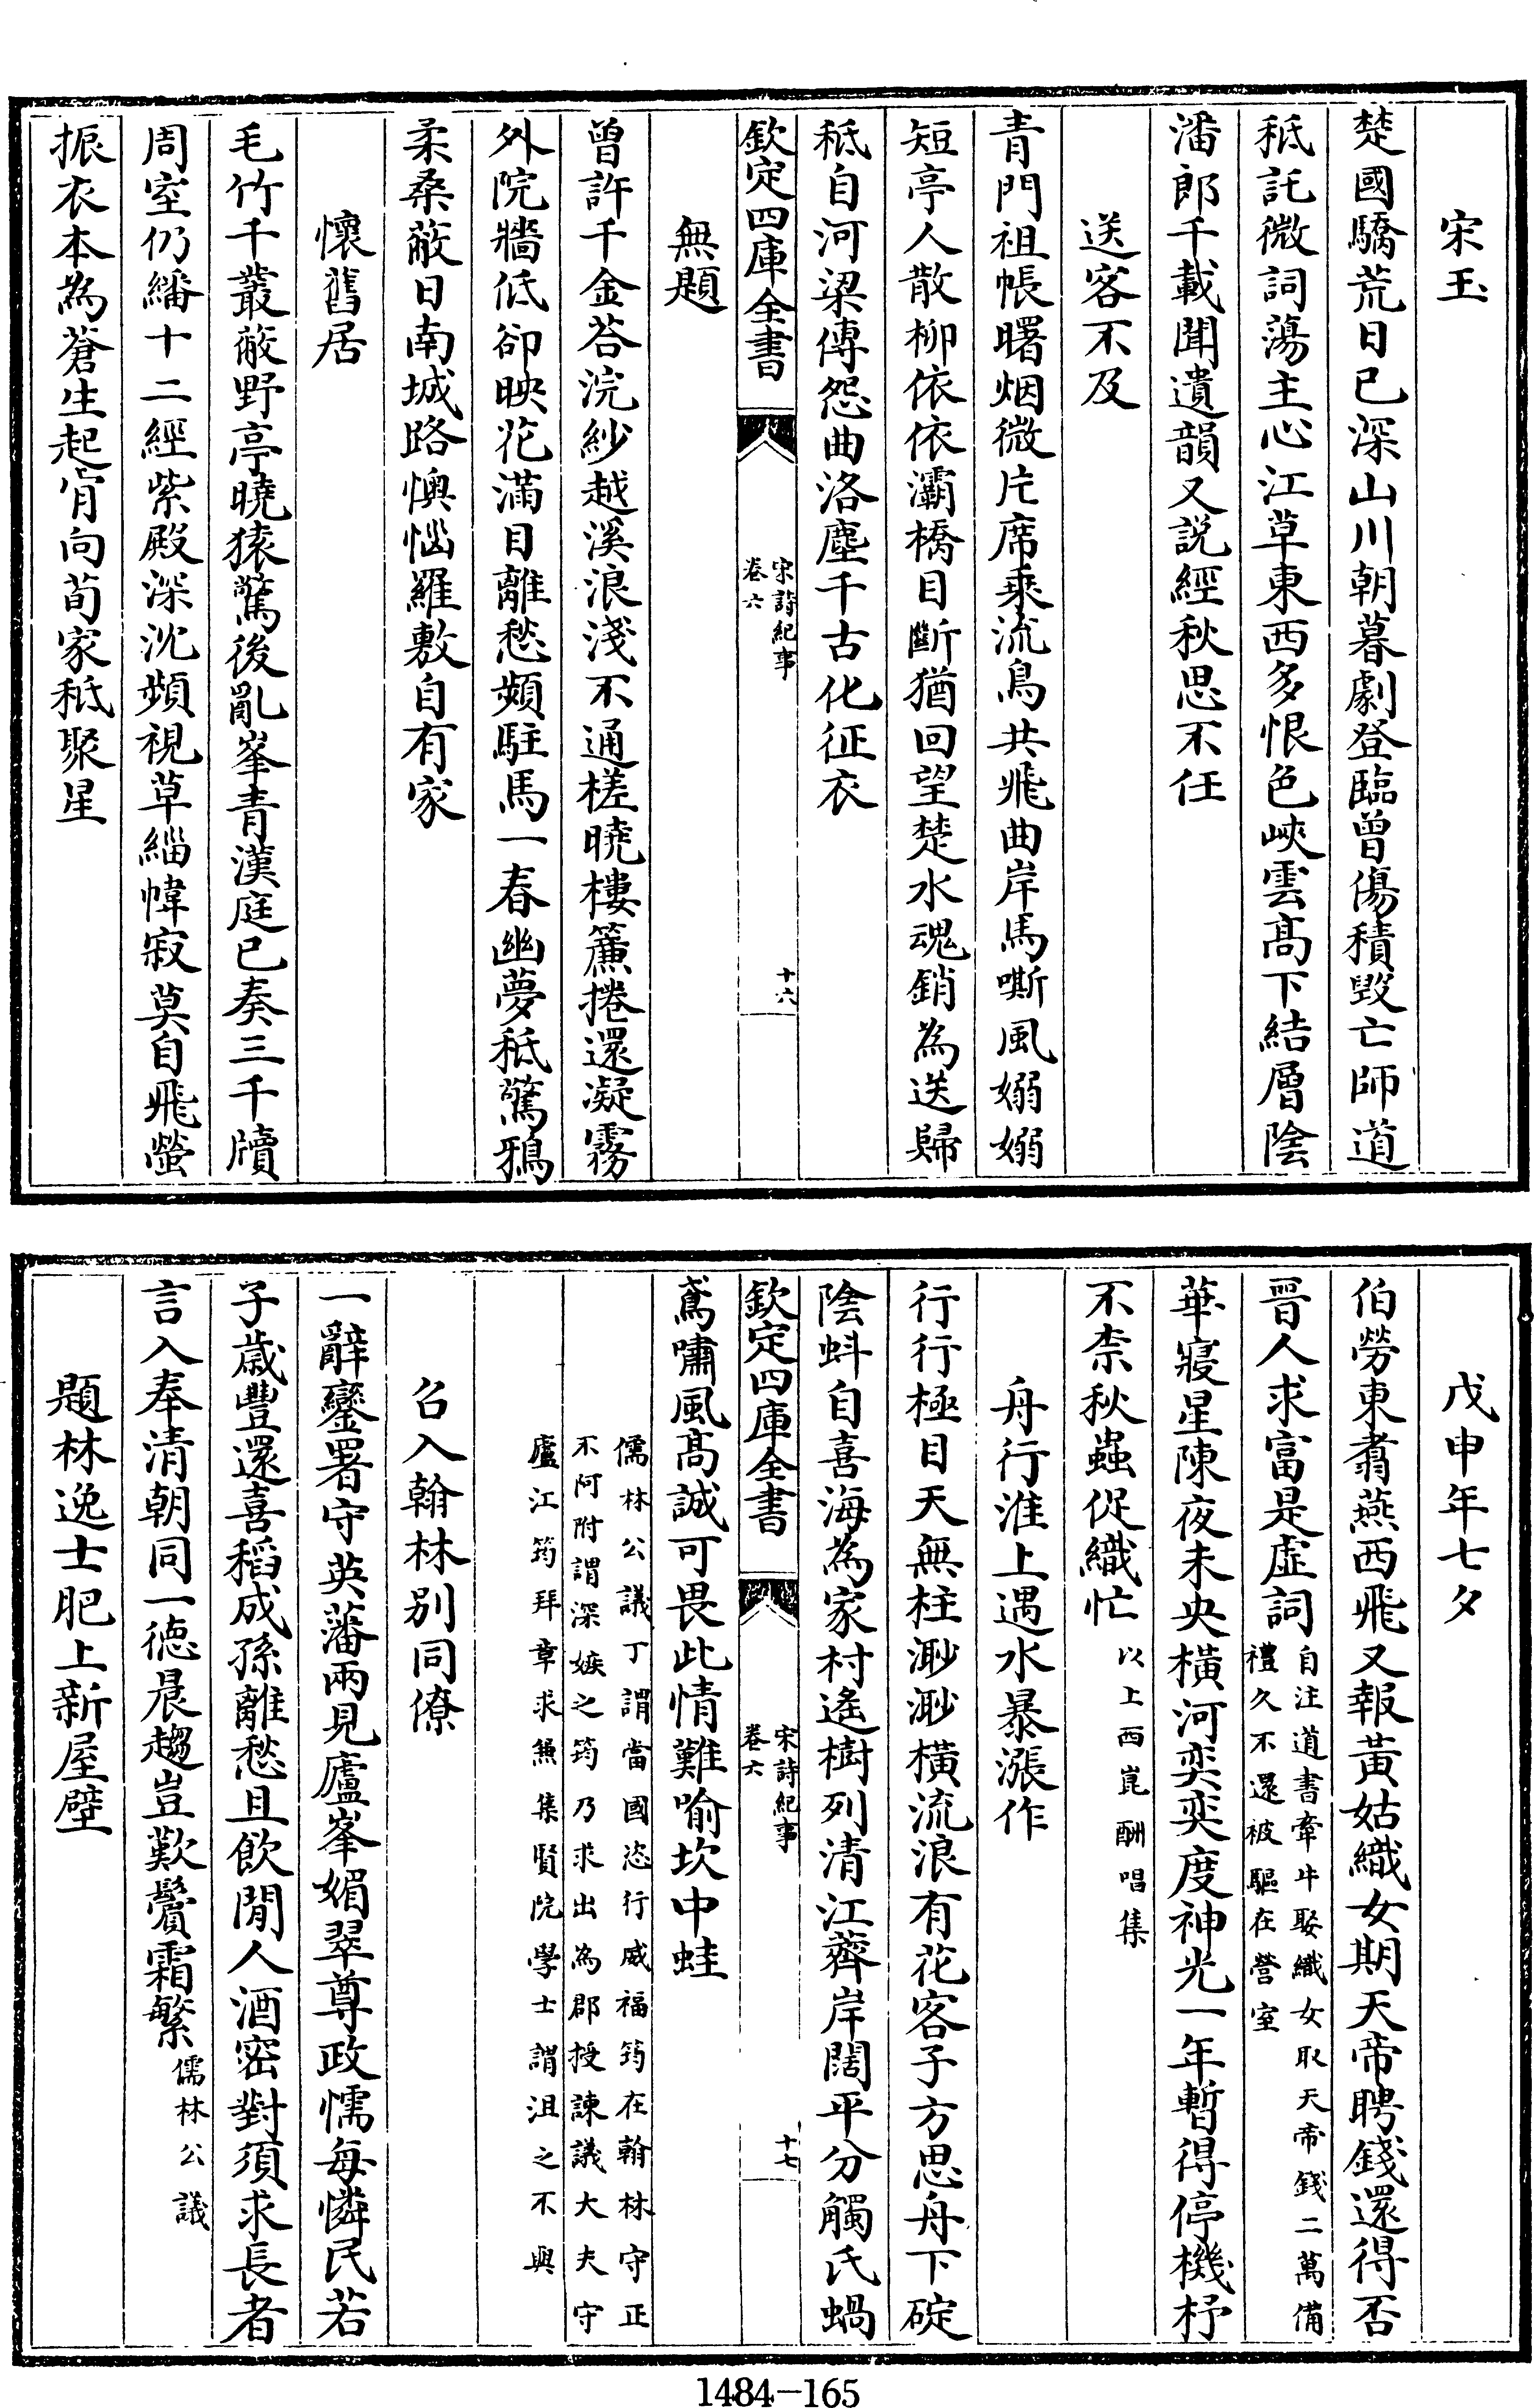 宋玉
楚國驕荒日已深山川朝暮劇登臨曾傷積毀亡師道
秪託微詞蕩主心江草東西多恨色峽雲髙下結層陰
潘郎千載聞遺韻又説經秋思不任
送客不及
青門祖帳曙烟微片席乘流鳥共飛曲岸馬嘶風嫋嫋
短亭人散柳依依灞橋目斷猶回望楚水魂銷為送歸
秪自河梁傳怨曲洛塵千古化征衣
欽定四庫全書
宋詩紀事
卷六
十六
無題
曾許千金荅浣紗越溪浪淺不通槎曉樓簾捲還凝霧
外院牆低卻映花滿目離愁頻駐馬一春幽夢秪驚鴉
柔桑蔽日南城路懊惱羅敷自有家
懷舊居
毛竹千叢蔽野亭曉猿驚後亂峯青漢庭已奏三千牘
周室仍繙十二經紫殿深沈頻視草緇幃寂莫自飛螢
振衣本為蒼生起肯向荀家秪聚星
戊申年七夕
伯勞東翥燕西飛又報黃姑織女期天帝聘錢還得否
晉人求富是虛詞
自注道書牽牛娶織女取天帝錢二萬備
禮久不還被驅在營室
華寢星陳夜未央橫河奕奕度神光一年暫得停機杼
不柰秋蟲促織忙
以上西崑酬唱集
舟行淮上遇水暴漲作
行行極目天無柱渺渺橫流浪有花客子方思舟下碇
陰蚪自喜海為家村遙樹列清江薺岸闊平分觸氏蝸
欽定四庫全書
宋詩紀事
卷六
十七
鳶嘯風髙誠可畏此情難喻坎中蛙
儒林公議丁謂當國恣行威福筠在翰林守正
不阿附謂深嫉之筠乃求出為郡授諫議大夫守
廬江筠拜章求兼集賢院學士謂沮之不與
召入翰林別同僚
一辭鑾署守英藩兩見廬峯媚翠尊政懦每憐民若
子歲豐還喜稻成孫離愁且飲閒人酒密對須求長者
言入奉清朝同一徳晨趨豈歎鬢霜繁
儒林公議
題林逸士肥上新屋壁
1484—165